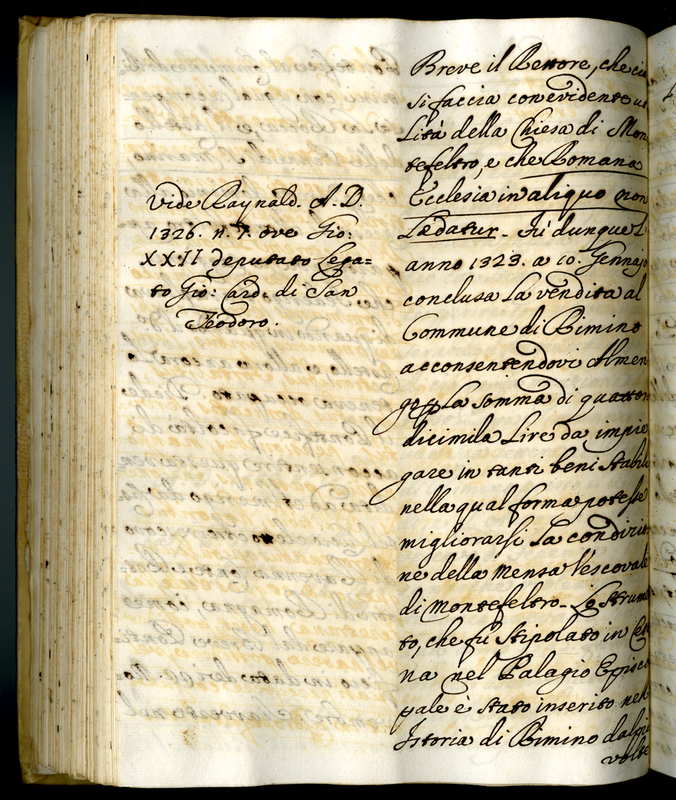 vide Raynald. A. D.
1326. n. 7. ove Gio:
XXII deputato Lega=
to Gio: Card. di San
Teodoro.
Breve il Rettore, che ciò
si faccia con evidente ut
lità della Chiesa di Mon
tefeltro, e che Romana
Ecclesia in aliquo non
Lædatur. Fu dunque l'
anno 1323. a 10. Gennajo
conclusa La vendita al
Commune di Rimino
acconsentendovi
La somma di quattor
dicimila Lire da impie
gare in tanti beni stabili
nella qual forma potesse
migliorarsi La condizio
ne della Mensa Vescovale
di Montefeltro. Lo strum
to, che fù stipolato in
na nel Palagio Episco
pale è stato inserito nell
Istoria di Rimino dal più
volte